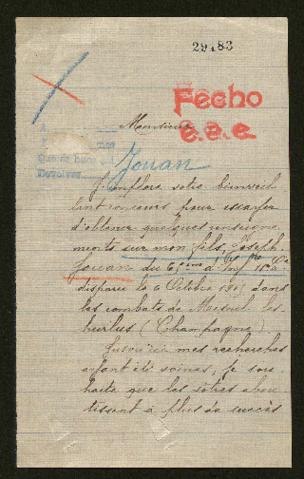 29483
Fecho
e.a.e.
Monsieur
Jouan
J'implore votre bienveil
lant concours pour essayer
d'obtenir quelques renseigne
ments sur mon fils, Joseph
Jouan du 6ème d'Inf
disparu le 6 Octobre 1915 dans
les combats de Mesnil les
hurlus (Champagne).
mes recherches
ayant été vaines, je sou
haite que les vôtres abou
tissent à plus de succès